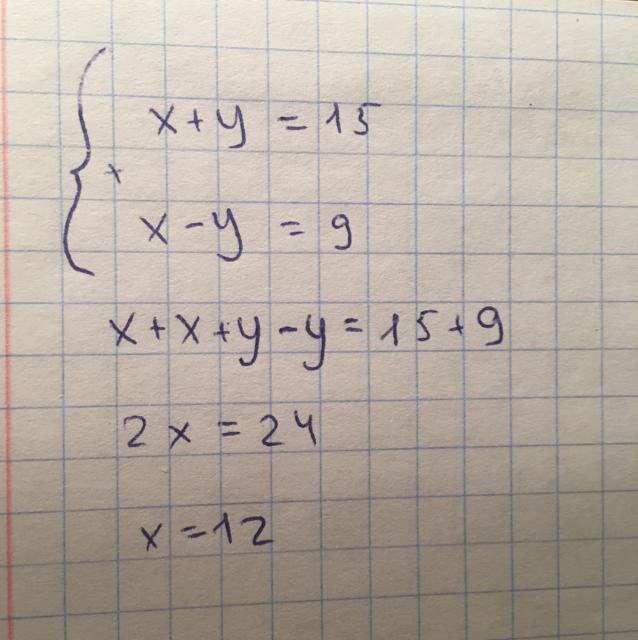 x + y = 15
+
x - y = 9
x + x + y - y = 15 + 9
2x = 24
x = 12